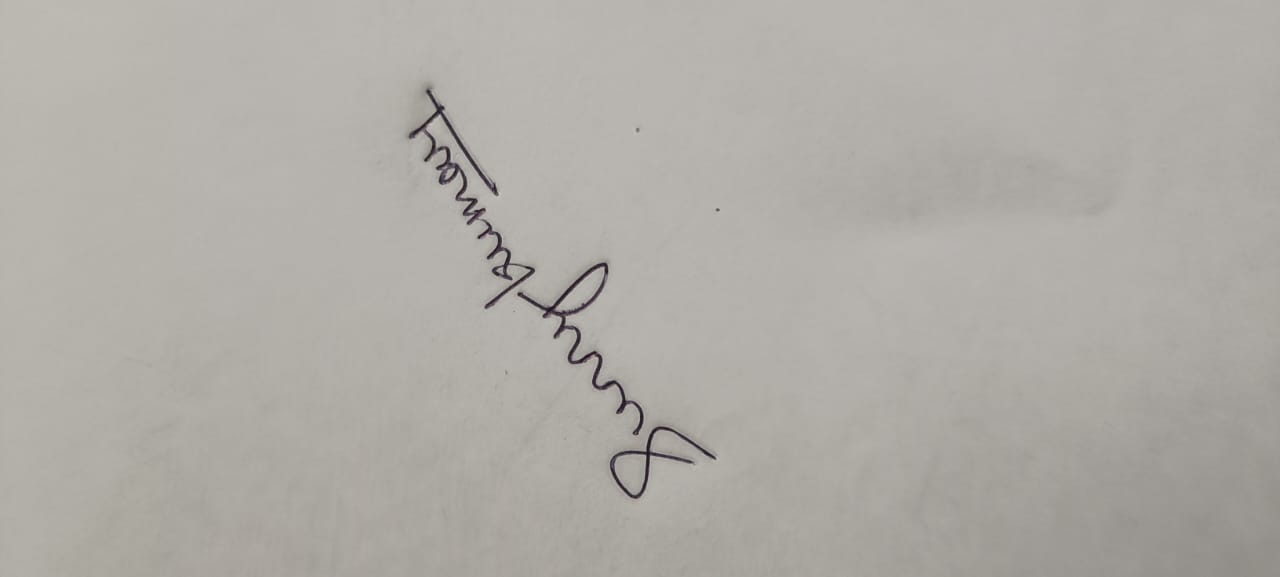 Sunny kumar